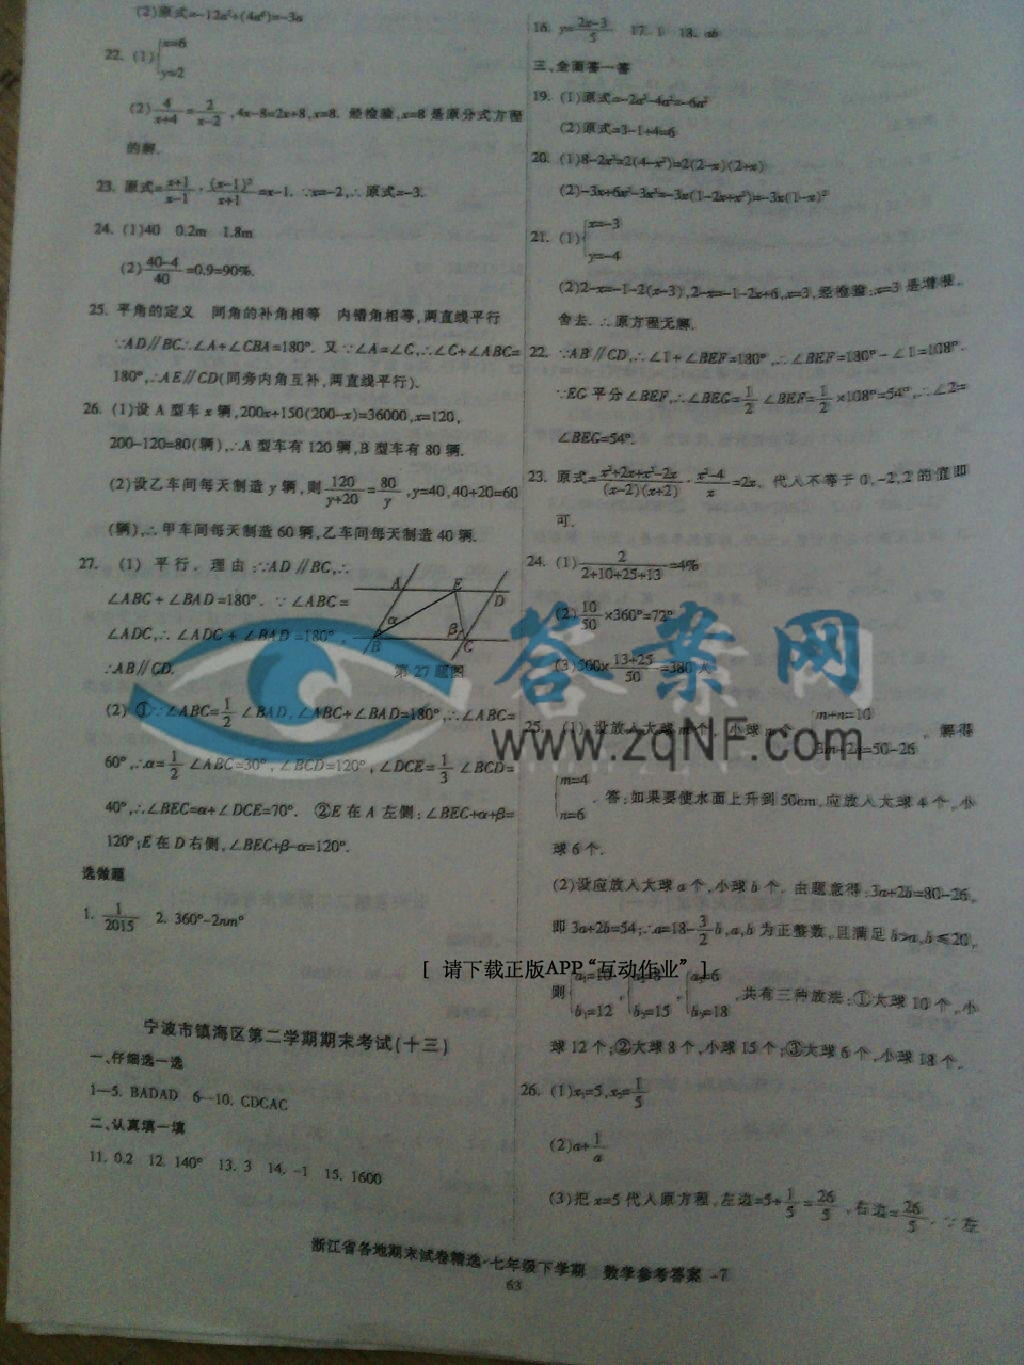 (2)原式=-12a⁵÷(4a⁴)=-3a
22. (1){x=6
y=2
(2)4/(x+4)=2/(x-2),4x-8=2x+8,x=8. 经检验,x=8是原分式方程
的解.
23. 原式=(x+1)/(x-1)·(x-1)²/(x+1)=x-1. ∵x=-2,∴原式=-3.
24. (1)40 0.2m 1.8m
(2)(40-4)/40=0.9=90%.
25. 平角的定义 同角的补角相等 内错角相等,两直线平行
∵AD∥BC∴∠A+∠CBA=180°. 又∵∠A=∠C,∴∠C+∠ABC=
180°,∴AE∥CD(同旁内角互补,两直线平行).
26. (1)设A型车x辆,200x+150(200-x)=36000,x=120,
200-120=80(辆),∴A型车有120辆,B型车有80辆.
(2)设乙车间每天制造y辆,则120/(y+20)=80/y,y=40,40+20=60
(辆),∴甲车间每天制造60辆,乙车间每天制造40辆.
27. (1)平行. 理由:∵AD∥BC,∴
∠ABC+∠BAD=180°. ∵∠ABC=
∠ADC,∴∠ADC+∠BAD=180°.
∴AB∥CD.
A E D α β B C
第27题图
(2)①∵∠ABC=1/2∠BAD,∠ABC+∠BAD=180°,∴∠ABC=
60°,∴α=1/2∠ABC=30°,∠BCD=120°,∠DCE=1/3∠BCD=
40°,∴∠BEC=α+∠DCE=70°. ②E在A左侧:∠BEC+α+β=
120°;E在D右侧,∠BEC+β-α=120°.
选做题
1. 1/2015 2. 360°-2nm°
宁波市镇海区第二学期期末考试(十三)
一、仔细选一选
1—5. BADAD 6—10. CDCAC
二、认真填一填
11. 0.2 12. 140° 13. 3 14. -1 15. 1600
16. y=(2x-3)/5 17. 1 18. ab
三、全面答一答
19. (1)原式=-2a²-4a²=-6a²
(2)原式=3-1+4=6
20. (1)8-2x²=2(4-x²)=2(2-x)(2+x)
(2)-3x+6x²-3x³=-3x(1-2x+x²)=-3x(1-x)²
21. (1){x=-3
y=-4
(2)2-x=-1-2(x-3),2-x=-1-2x+6,x=3,经检验:x=3是增根,
舍去.∴原方程无解.
22. ∵AB∥CD,∴∠1+∠BEF=180°,∴∠BEF=180°-∠1=108°.
∵EG平分∠BEF,∴∠BEG=1/2∠BEF=1/2×108°=54°,∴∠2=
∠BEG=54°.
23. 原式=(x²+2x+x²-2x)/((x-2)(x+2))·(x²-4)/x=2x. 代入不等于0,-2,2的值即
可.
24. (1)2/(2+10+25+13)=4%
(2)10/50×360°=72°
(3)500×(13+25)/50=380人
25. (1)设放入大球m个,小球n个 {m+n=10
3m+2n=50-26,解得
{m=4
n=6. 答:如果要使水面上升到50cm,应放入大球4个,小
球6个.
(2)设应放入大球a个,小球b个. 由题意得:3a+2b=80-26,
即3a+2b=54;∴a=18-3/2b,a,b为正整数,且满足b>a,b≤20,
则{a₁=10 b₁=12,{a₂=8 b₂=15,{a₃=6 b₃=18,共有三种放法:①大球10个,小
球12个;②大球8个,小球15个;③大球6个,小球18个.
26. (1)x₁=5,x₂=1/5
(2)a+1/a
(3)把x=5代入原方程,左边=5+1/5=26/5,右边=26/5,∵左
答案网
www.zqNF.com
[ 请下载正版APP“互动作业” ]
浙江省各地期末试卷精选·七年级下学期 数学参考答案-7
63